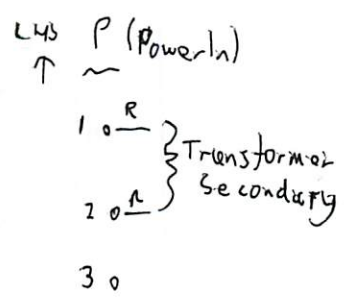 LHS P (PowerIn)
1 R
Transformer
Secondary
2 R
3